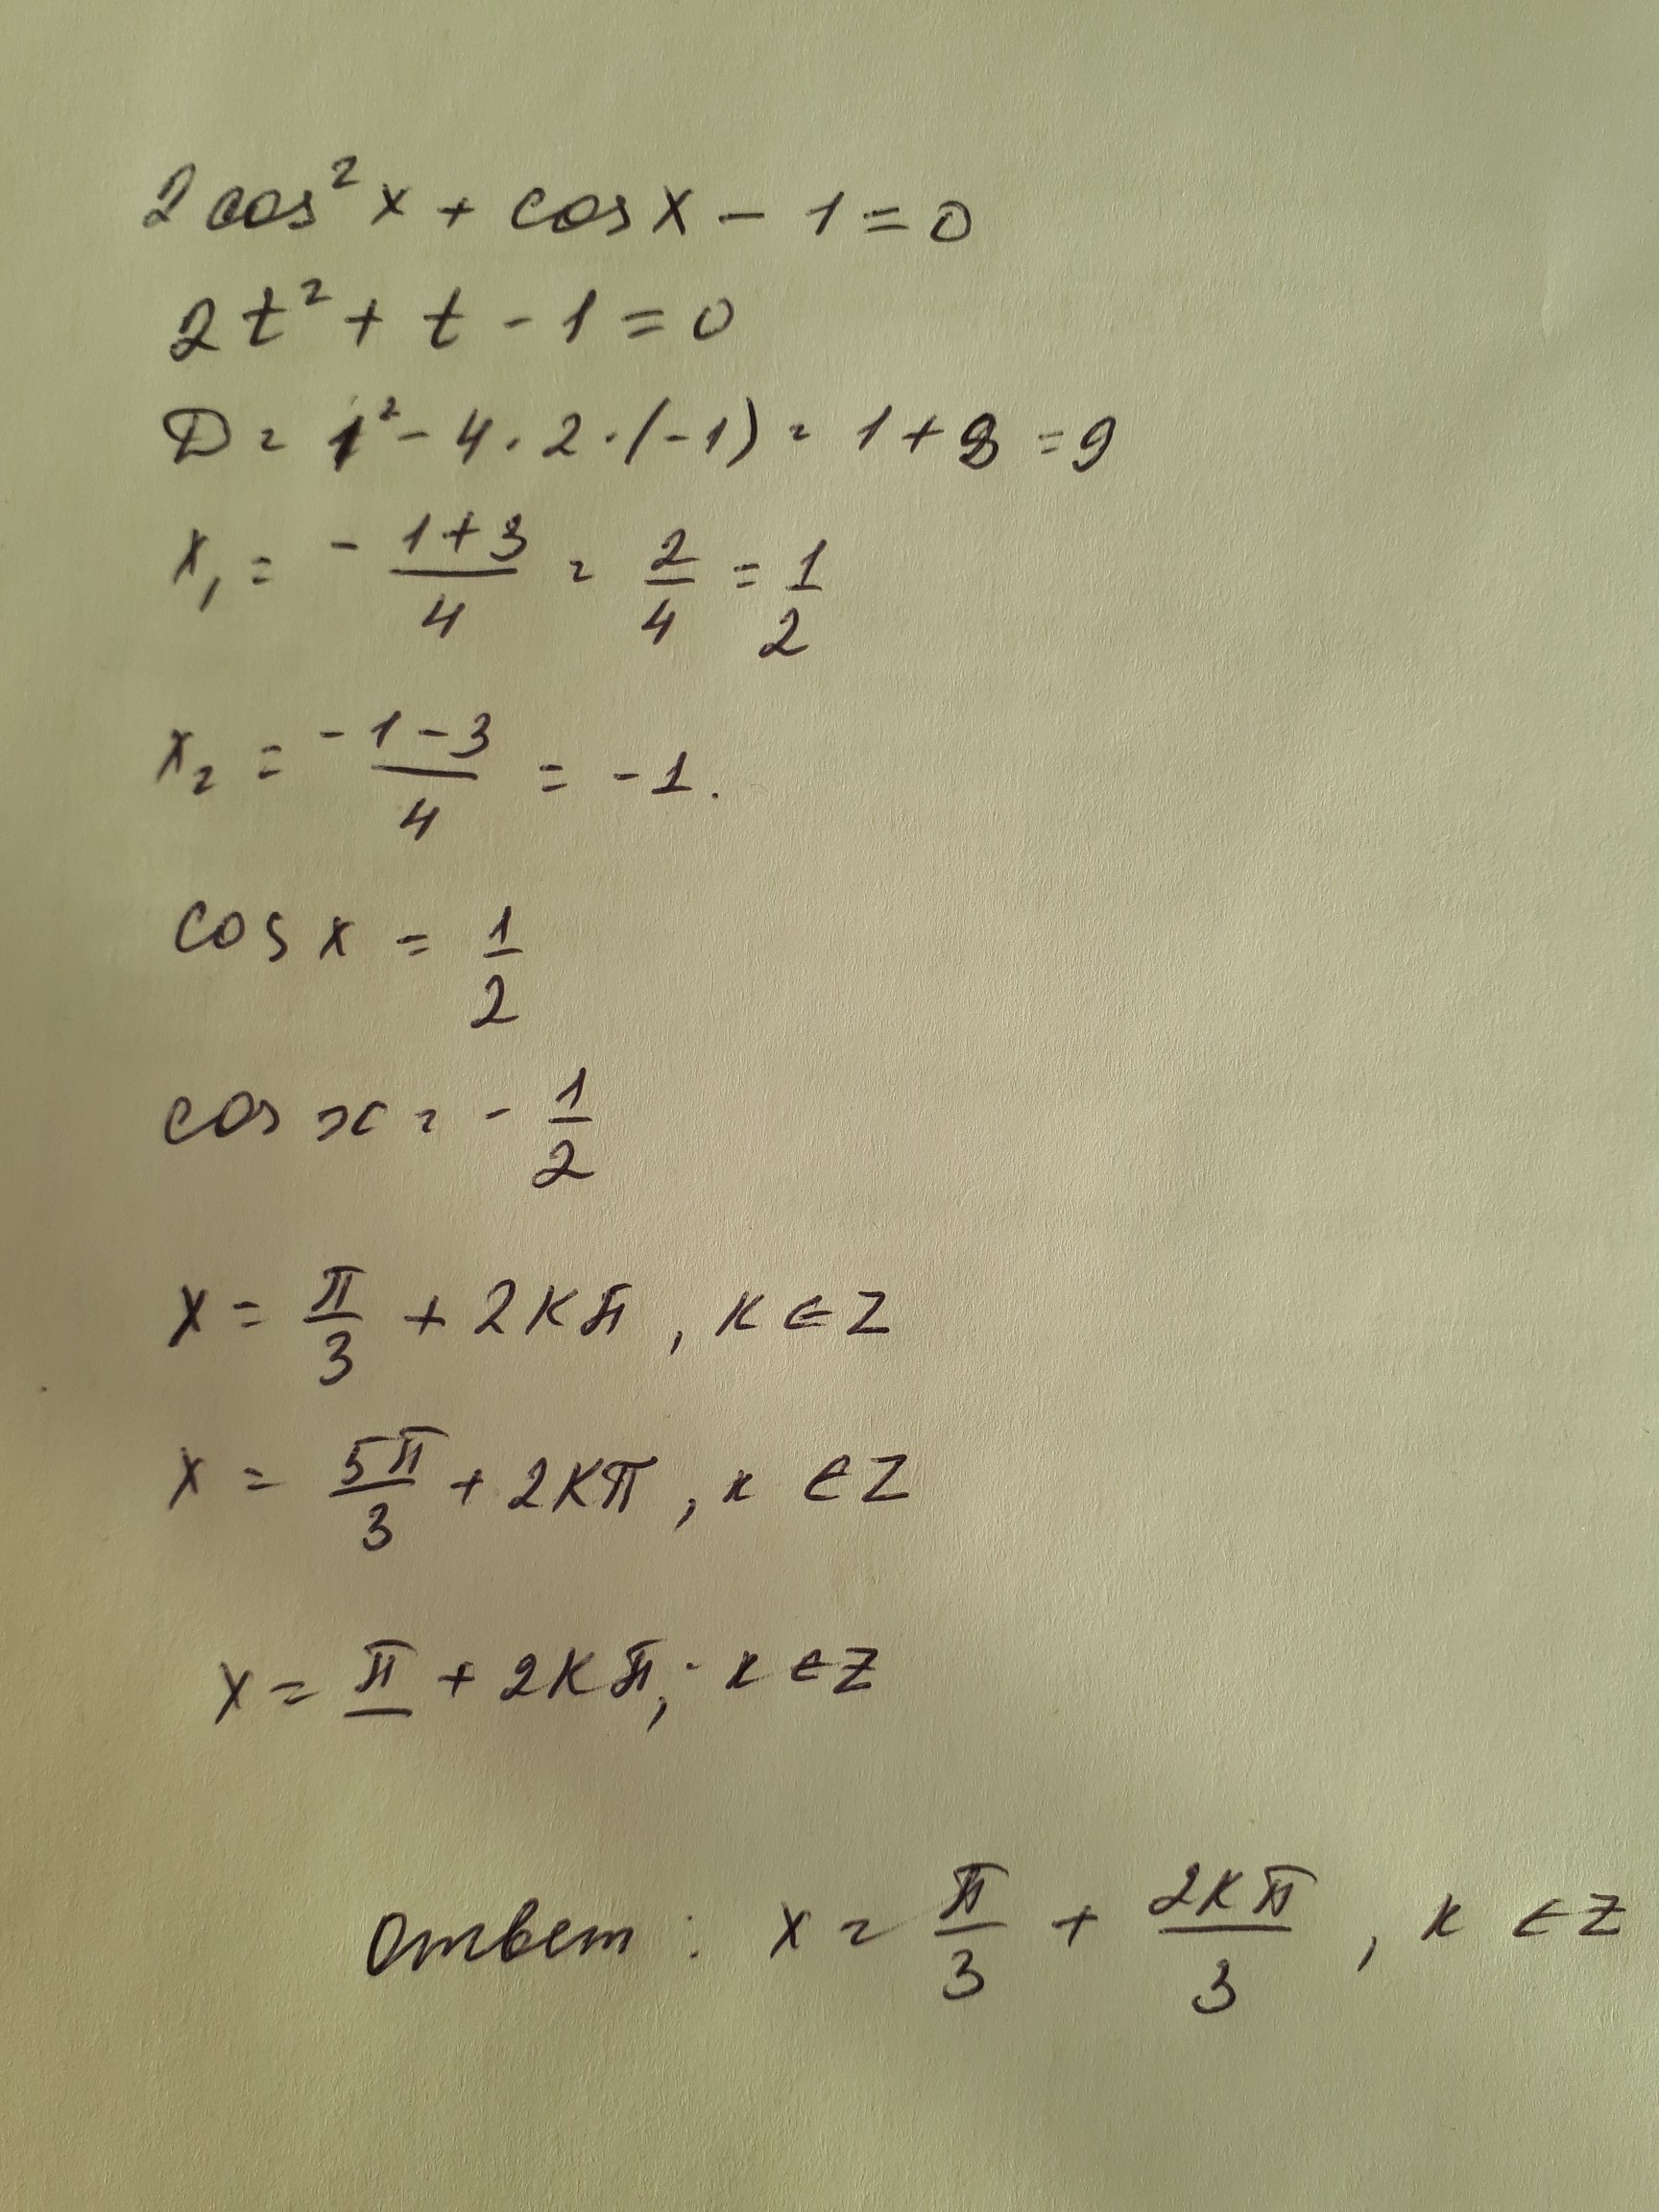 2cos²x + cosx - 1 = 0
2t² + t - 1 = 0
D = 1² - 4 · 2 · (-1) = 1 + 8 = 9
x₁ = - (1+3)/4 = 2/4 = 1/2
x₂ = (-1-3)/4 = -1.
cos x = 1/2
cos x = - 1/2
x = π/3 + 2kπ, k ∈ Z
x = 5π/3 + 2kπ, k ∈ Z
x = π + 2kπ, k ∈ Z
ответ: x = π/3 + 2kπ/3, k ∈ Z